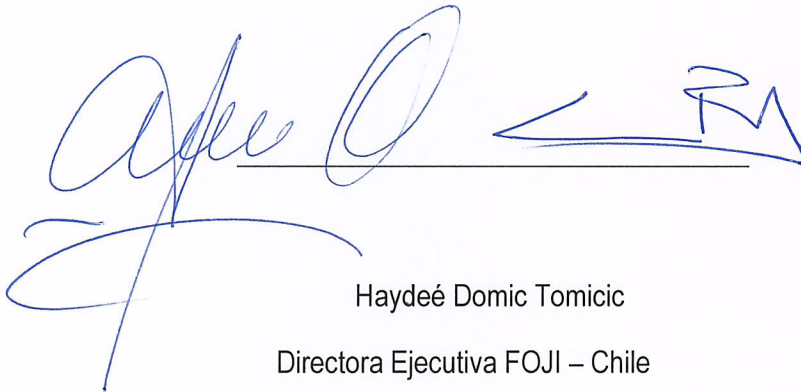 Haydeé Domic Tomicic
Directora Ejecutiva FOJI – Chile